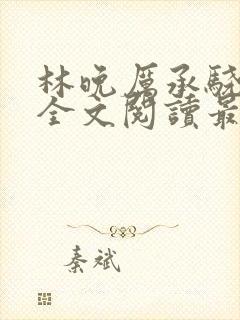 林晚厲承驍
全文閱讀最
秦斌